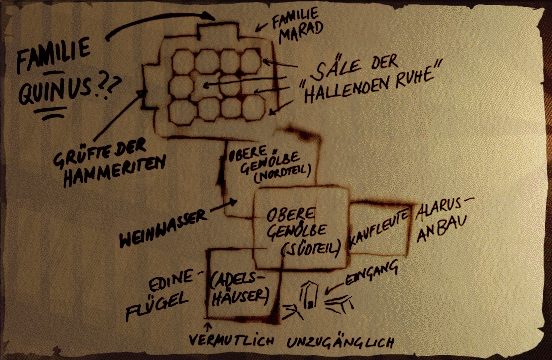 FAMILIE
MARAD
FAMILIE
QUINUS??
"SÄLE DER
HALLENDEN RUHE"
GRÜFTE DER
HAMMERITEN
OBERE
GEWÖLBE
(NORDTEIL)
WEIHWASSER
OBERE
GEWÖLBE
(SÜDTEIL)
KAUFLEUTE
ALARUS-
ANBAU
EDINE-
FLÜGEL
(ADELS-
HÄUSER)
EINGANG
VERMUTLICH UNZUGÄNGLICH